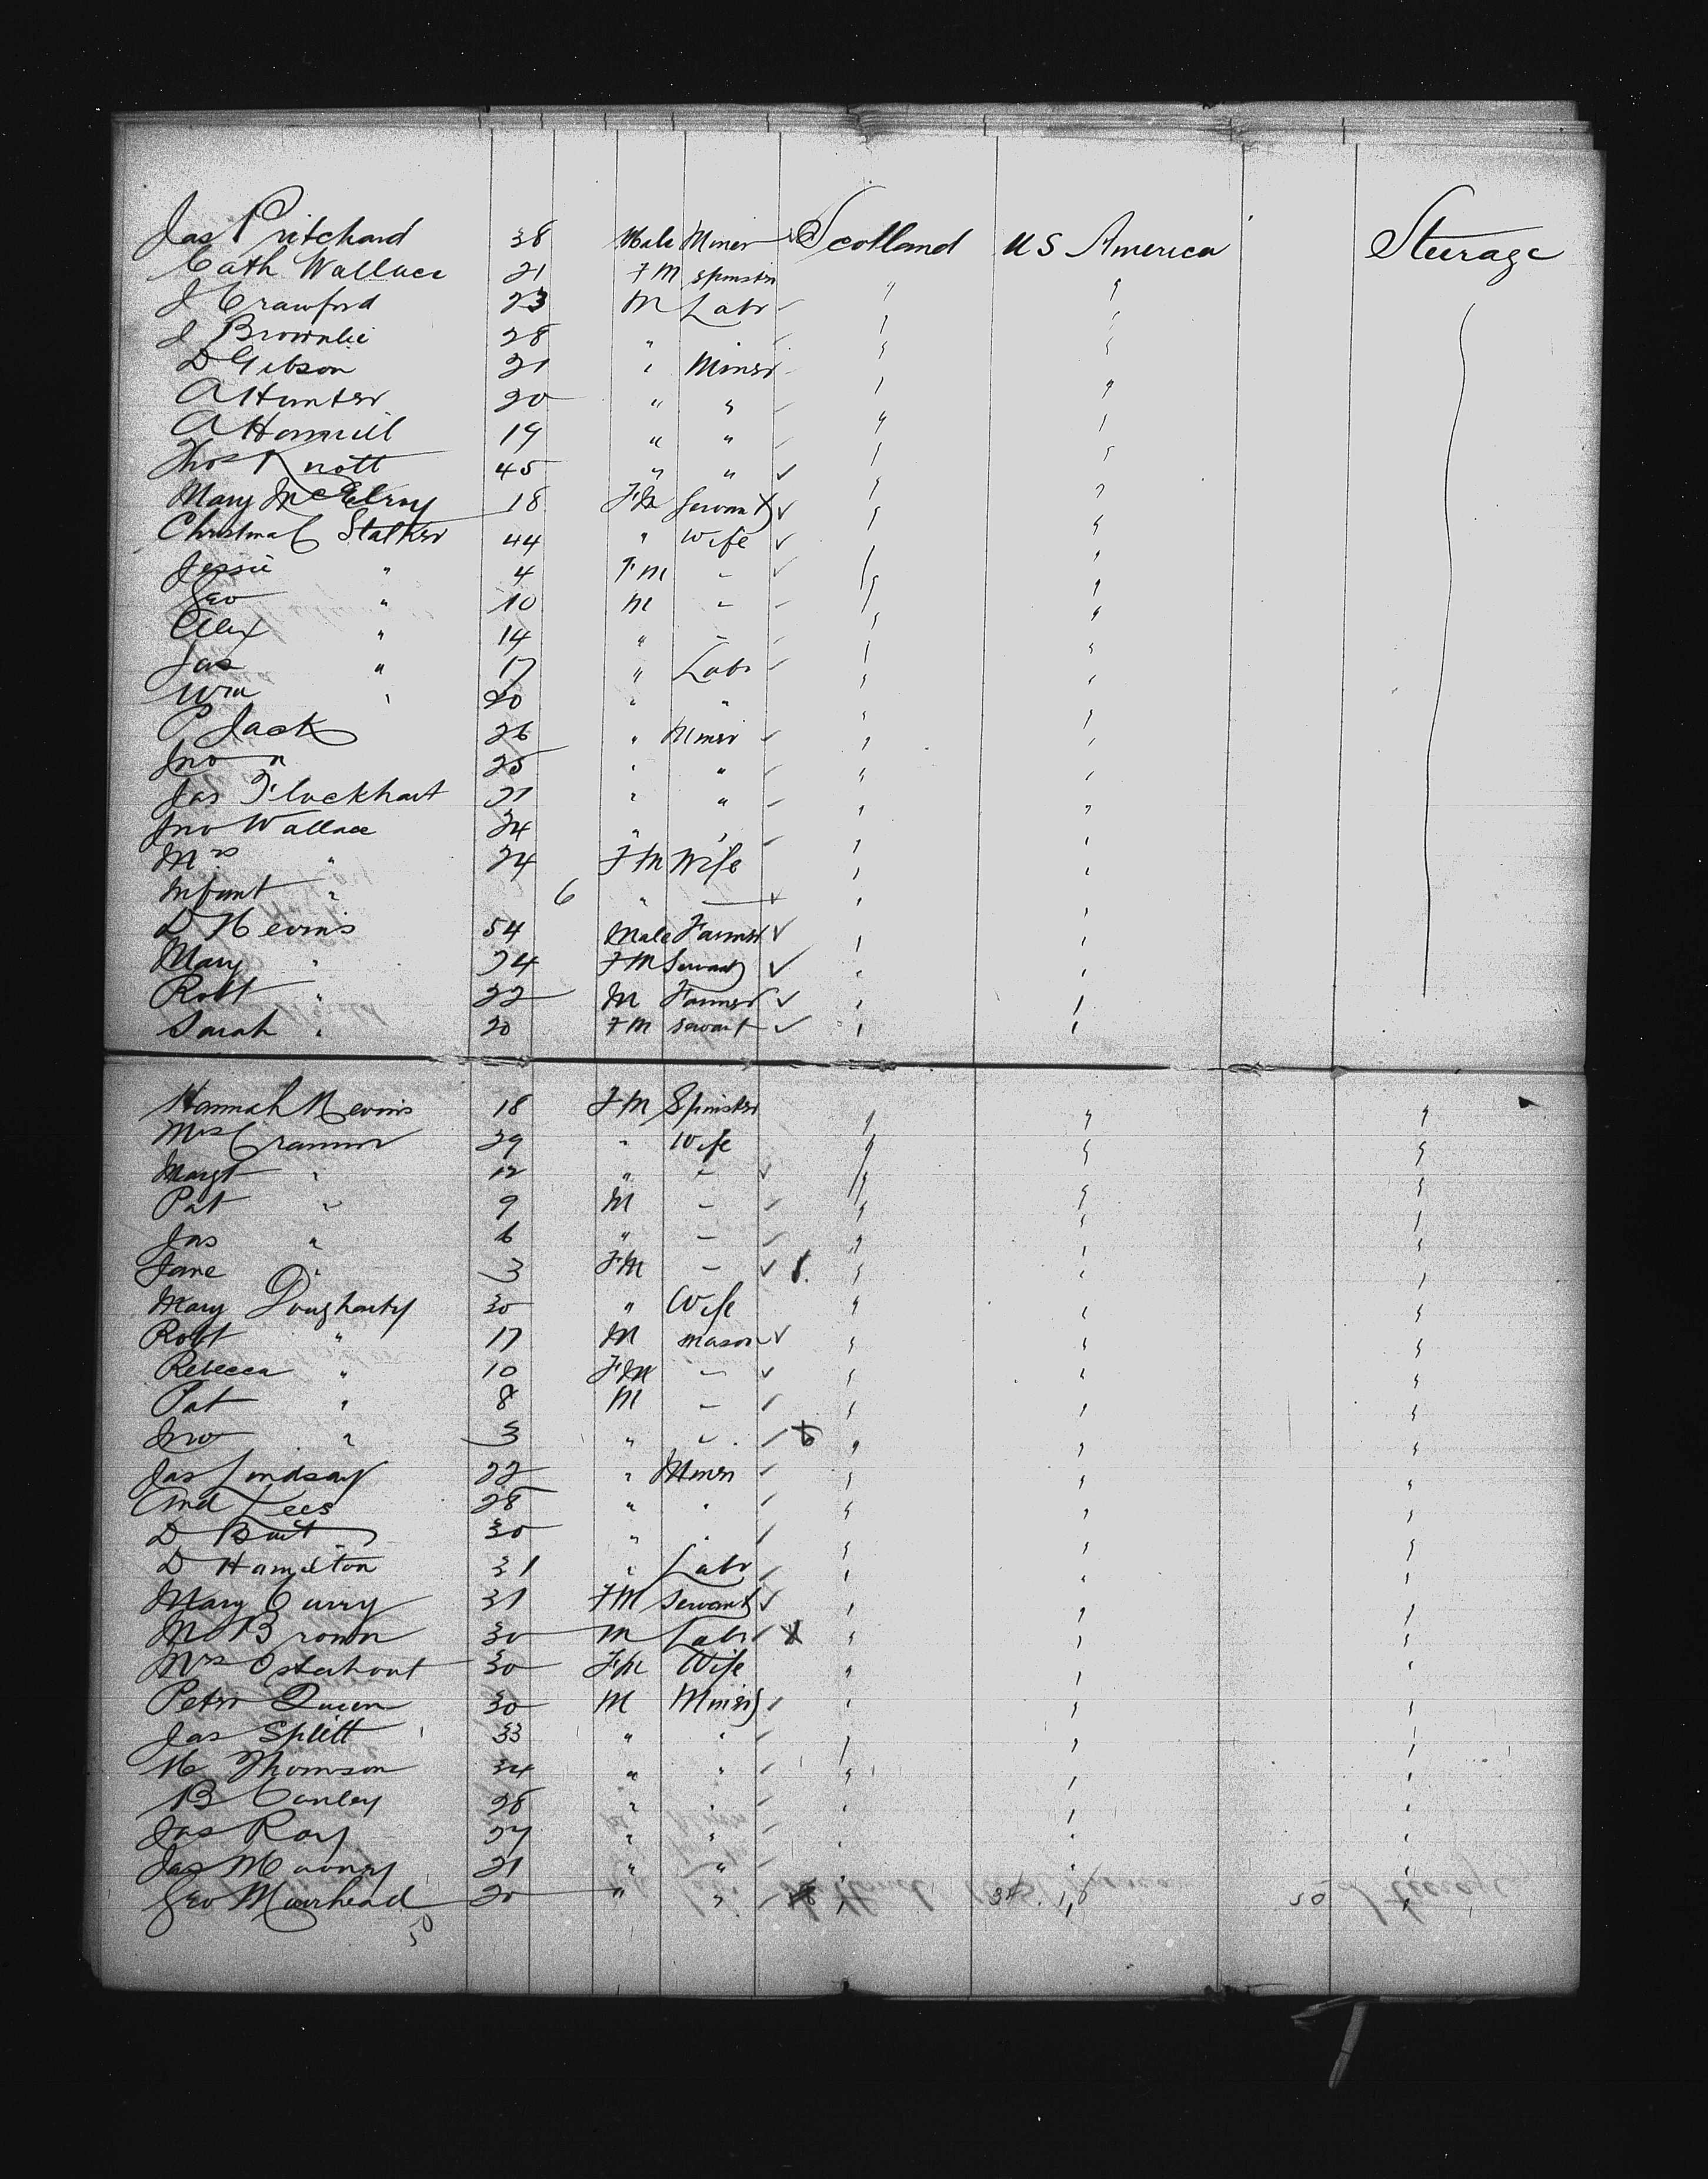 Jas Pritchard 38 Male Miner Scotland US America Steerage
Cath Wallace 21 FM Spinster " "
J Crawford 23 M Labr " "
J Brownlie 28 " " "
D Gibson 21 " Miner " "
A Hunter 20 " " " "
A 19 " " " "
Thos Knott 45 " " " "
Mary McElroy 18 FM Servant " "
Christina C Stalker 44 " Wife " "
Jessie " 4 FM - " "
Geo " 10 M - " "
Alex " 14 " - " "
Jas " 17 " Labr " "
Wm " 20 " " " "
P Jack 26 " Miner " "
Jno " 25 " " " "
Jas Flockhart 21 " " " "
Jno Wallace 24 " " " "
Mrs " 24 FM Wife " "
Infant " 6 " - " "
D Nevins 54 Male Farmer " "
Mary " 24 FM Servant " "
Robt " 22 M Farmer " "
Sarah " 20 FM Servant " "
Hannah Nevins 18 FM Spinster " " "
Mrs 29 " Wife " " "
Margt " 12 " - " " "
Pat " 9 M - " " "
Jas " 6 " - " " "
Jane " 3 FM - " " "
Mary Dougharty 30 " Wife " " "
Robt " 17 M Mason " " "
Rebecca " 10 FM - " " "
Pat " 8 M - " " "
Jno " 3 " - " " "
Jas Lindsay 22 " Miner " " "
And Lees 28 " " " " "
D 30 " " " " "
D Hamilton 31 " Labr " " "
Mary Curry 31 FM Servant " " "
M Brown 30 M Labr X " " "
Mrs Osterhout 30 FM Wife " " "
Peter Queen 30 M Miner " " "
Jas Splitt 33 " " " " "
Thomson 34 " " " " "
B Conley 28 " " " " "
Jas Roy 27 " " " " "
Jas 21 " " " " "
Geo Muirhead 20 " " " " "
50